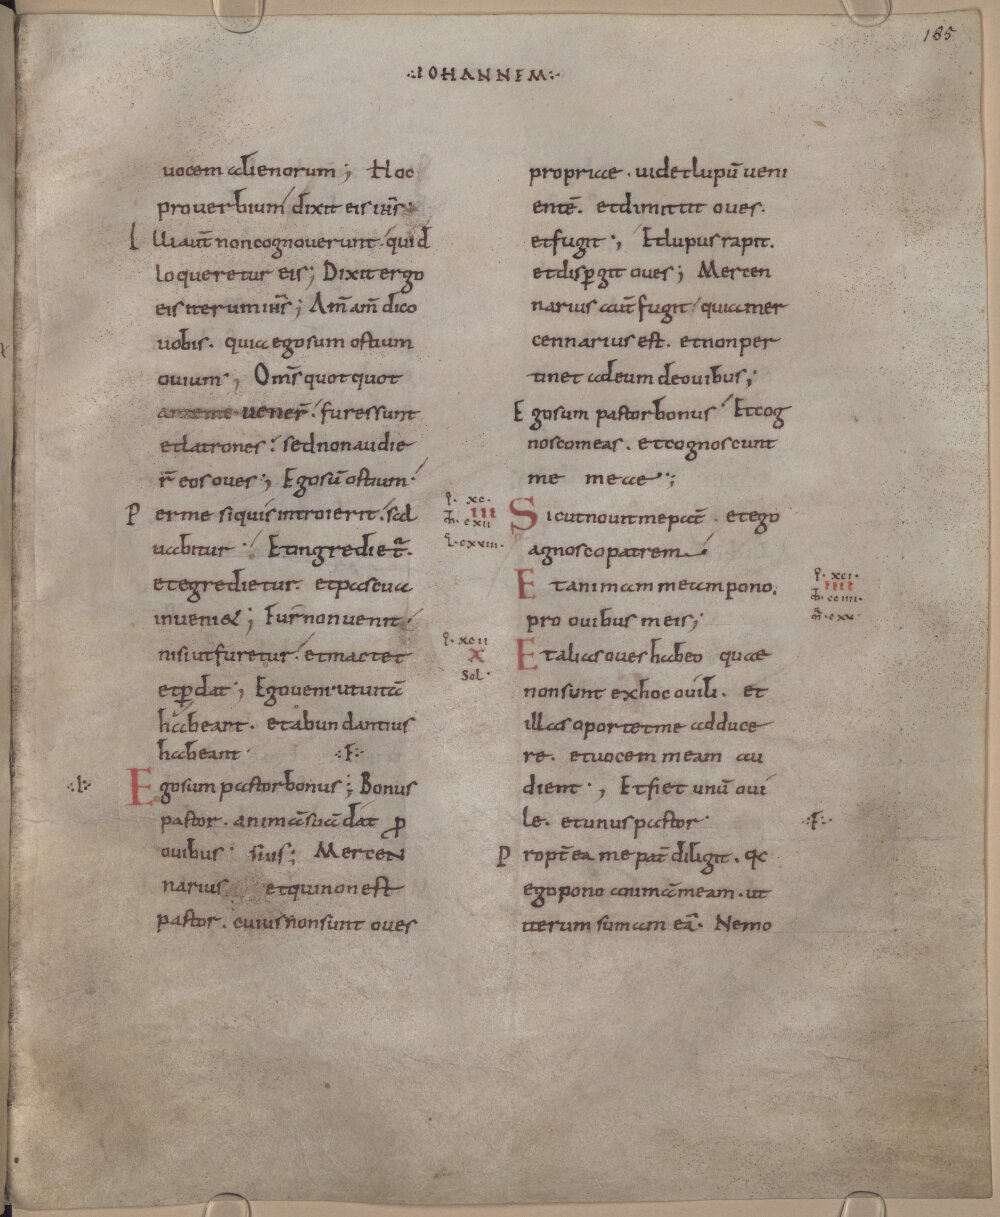 185
·:IOHANNEM:·
uocem alienorum; Hoc
prouerbium dixit eis ih̅s:
Illi aut̅ non cognouerunt quid
loqueretur eis; Dixit ergo
eis iterum ih̅s; Am̅ am̅ dico
uobis. quia ego sum ostium
ouium; Om̅s quotquot
ante me uener̅. fures sunt
et latrones: sed non audie
r̅ eos oues; Ego su̅ ostium
Per me si quis introierit. sal
uabitur: Et ingrediet̅.
et egredietur. et pascua
inueniet; Fur n̅ non uenit
nisi ut furetur. et mactet
et ꝑdat; Ego ueni ut uita̅
habeant. et abundantius
habeant. ·:F:·
·:I:·
Ego sum pastor bonus; Bonus
pastor. anima̅ sua̅ dat ꝓ
ouibus suis; Mercen
narius et qui non est
pastor. cuius non sunt oues
q. xc.
III
m̅. cxii
l. cxviii.
q. xcii
X
Sol.
propriae. uidet lupu̅ ueni
ente̅. et dimittit oues.
et fugit; Et lupus rapit.
et disꝑgit oues; Mercen
narius aut̅ fugit quia mer
cennarius est. et non per
tinet ad eum de ouibus;
Ego sum pastor bonus Et cog
nosco meas. et cognoscunt
me meae;
Sicut nouit me pat̅. et ego
agnosco patrem
Et animam meam pono.
pro ouibus meis;
Et alias oues habeo quae
non sunt ex hoc ouili. et
illas oportet me adduce
re. et uocem meam au
dient; Et fiet unu̅ oui
le. et unus pastor
·:F:·
Propt̅ea me pat̅ diligit. q̅
ego pono anima̅ meam. ut
iterum sumam ea̅. Nemo
q. xci.
IIII
m̅. cciiii.
m̅. cxx.